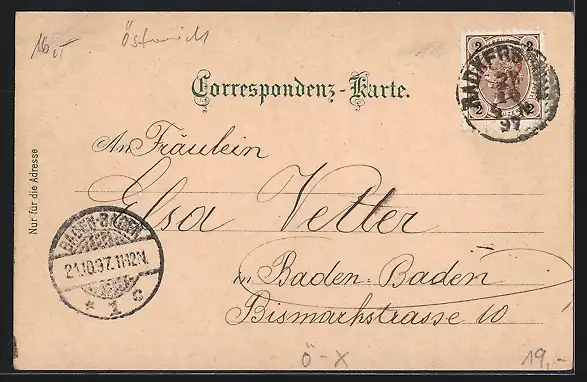 16
Österreich
Correspondenz-Karte.
2 2
RADKERSBURG
2 2
97
An Fräulein
Elsa Vetter
in Baden-Baden
Bismarkstrasse 10
Nur für die Adresse
BADEN-BADEN
21.10.97.11-12N.
* 1 c
Ö-X
19,-